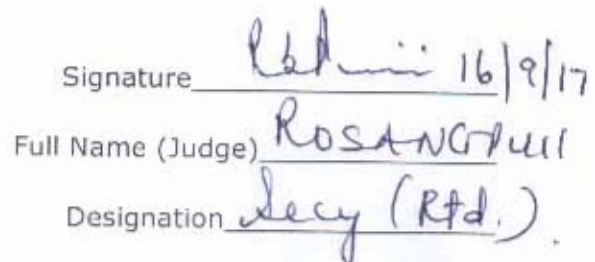 Signature 16/9/17
Full Name (Judge) ROSANGPUII
Designation Secy (Rtd.).